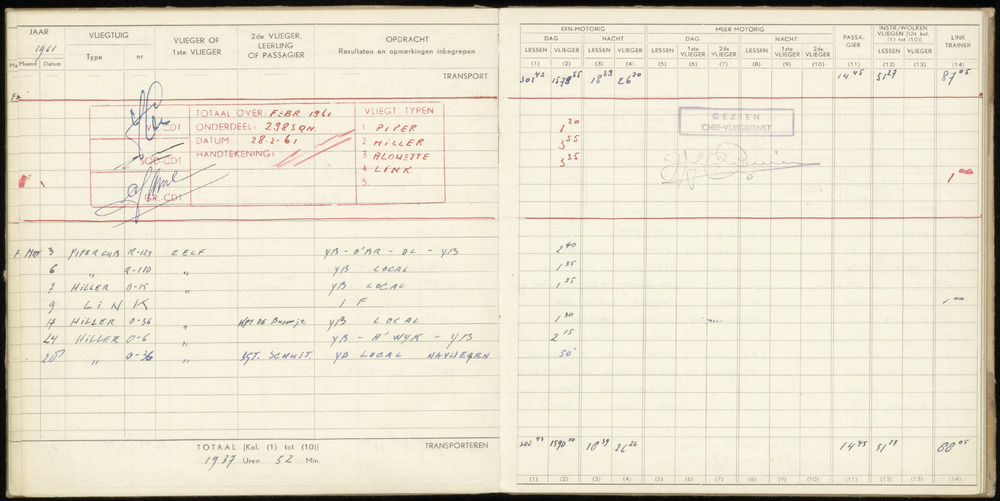 JAAR
1961
Maand Datum
VLIEGTUIG
Type nr
VLIEGER OF
1ste VLIEGER
2de VLIEGER,
LEERLING
OF PASSAGIER
OPDRACHT
Resultaten en opmerkingen inbegrepen
TRANSPORT
TOTAAL OVER: FEBR 1961
ONDERDEEL: 298 SQN.
DATUM: 28-2-61
HANDTEKENING:
SQD-CDT
GR.CDT
VLIEGT TYPEN
1 PIPER
2 HILLER
3 ALOUETTE
4 LINK
5.
3 PIPERCUB R-124 ZELF YB - O'BR - DL - YB
6 " R-110 " YB LOCAL
7 HILLER O-15 " YB LOCAL
9 LINK I F
17 HILLER O-36 " YB LOCAL
24 HILLER O-6 " YB - H'WYK - YB
" O-36 " SGT. SCHUIT. YB LOCAL NAVLIEGEN
TOTAAL (Kol. (1) tot (10)) TRANSPORTEREN
1937 Uren 52 Min.
EEN-MOTORIG
DAG NACHT
LESSEN VLIEGER LESSEN VLIEGER
(1) (2) (3) (4)
MEER MOTORIG
DAG NACHT
LESSEN 1ste VLIEGER 2de VLIEGER LESSEN 1ste VLIEGER 2de VLIEGER
(5) (6) (7) (8) (9) (10)
PASSA-
GIER
(11)
INSTR/WOLKEN
VLIEGEN (Uit kol.
(1) tot (10))
LESSEN VLIEGER
(12) (13)
LINK
TRAINER
(14)
302 43 18 39 26 20 14 45 51 27 87 05
GEZIEN
CHEF-VLIEGDIENST
1 20
3 55
3 35
1 00
2 40
1 35
1 25
1 00
1 30
2 15
50
302 43 1590 10 18 39 26 20 14 45 51 27 88 05
(1) (2) (3) (4) (5) (6) (7) (8) (9) (10) (11) (12) (13) (14)